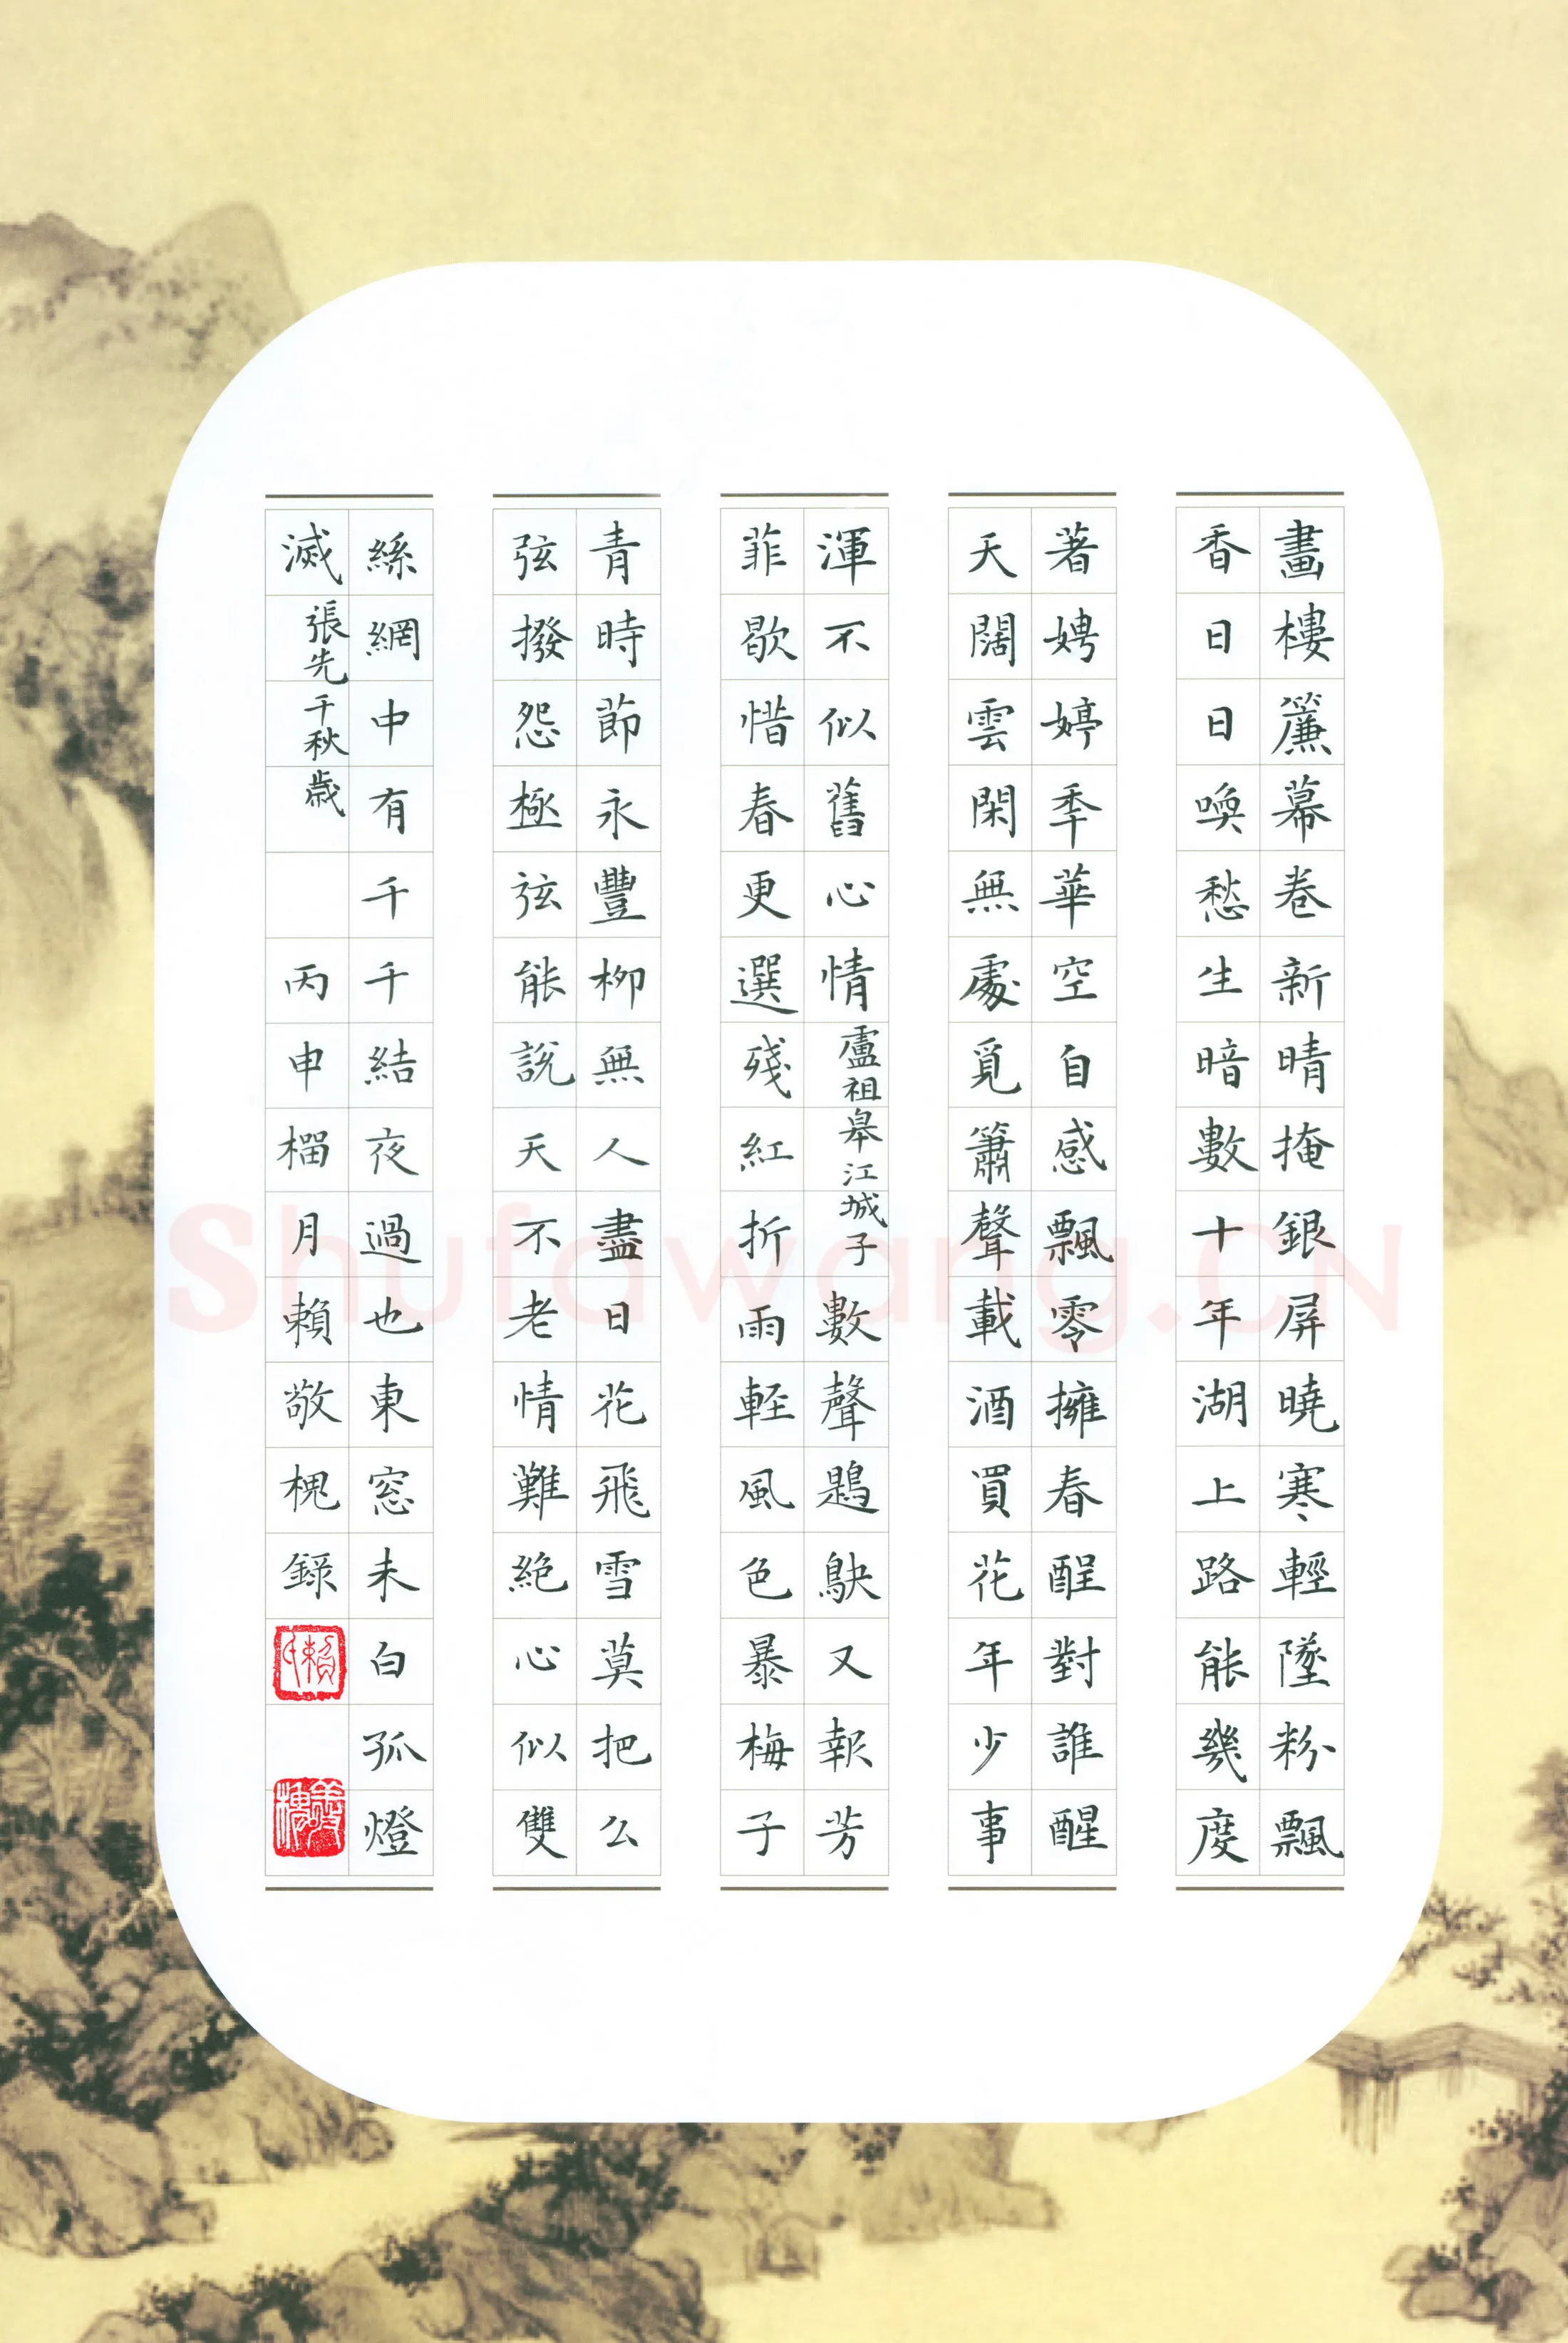 畫樓簾幕卷新晴掩銀屏曉寒輕墜粉飄
香日日喚愁生暗數十年湖上路能幾度
著娉婷秊華空自感飄零擁春酲對誰醒
天闊雲閑無處覓簫聲載酒買花年少事
渾不似舊心情盧祖皋江城子數聲鶗鴃又報芳
菲歇惜春更選殘紅折雨軽風色暴梅子
青時節永豐柳無人盡日花飛雪莫把么
弦撥怨極弦能說天不老情難絕心似雙
絲網中有千千結夜過也東窓未白孤燈
滅張先千秋歲 丙申榴月賴敬槐錄
賴氏
Shufawang.CN